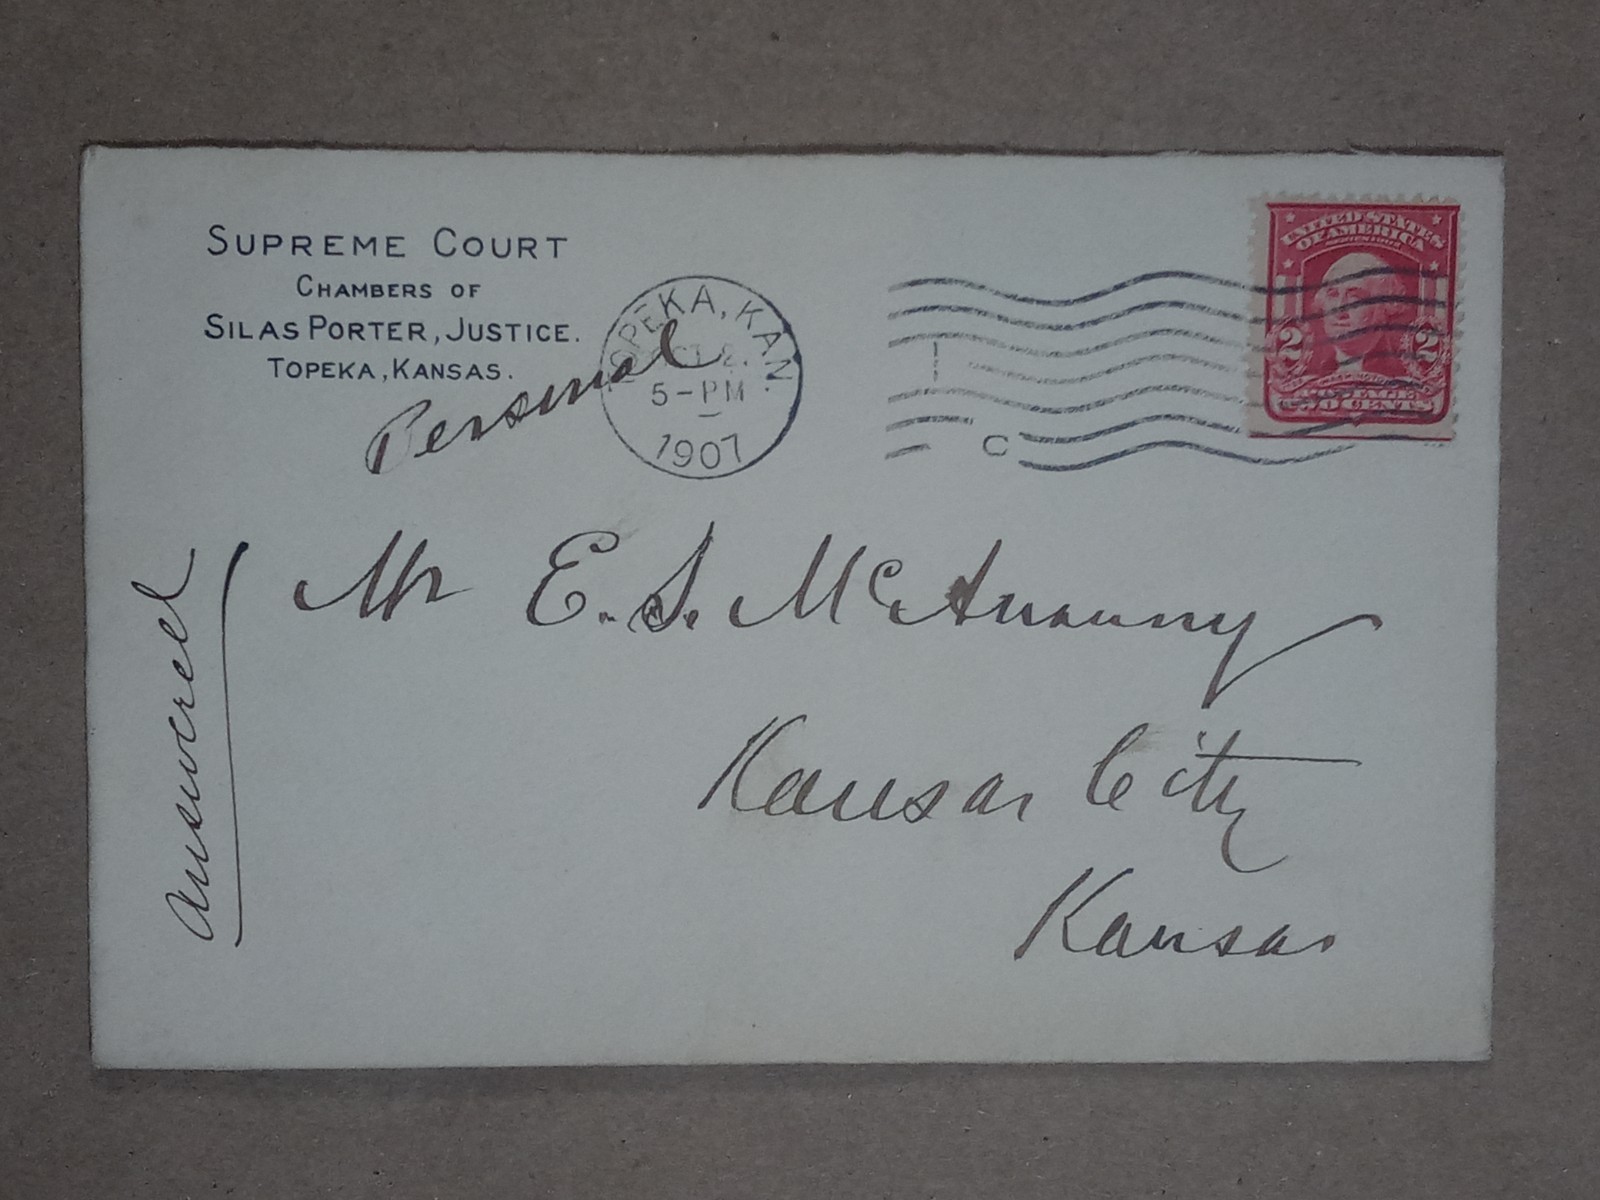 SUPREME COURT
CHAMBERS OF
SILAS PORTER, JUSTICE.
TOPEKA, KANSAS.
Personal
TOPEKA, KAN.
OCT 2.
5-PM
1907
C
UNITED STATES
OF AMERICA
2 2
TWO CENTS
Mr E. S. McAnany
Kansas City
Kansas
Answered